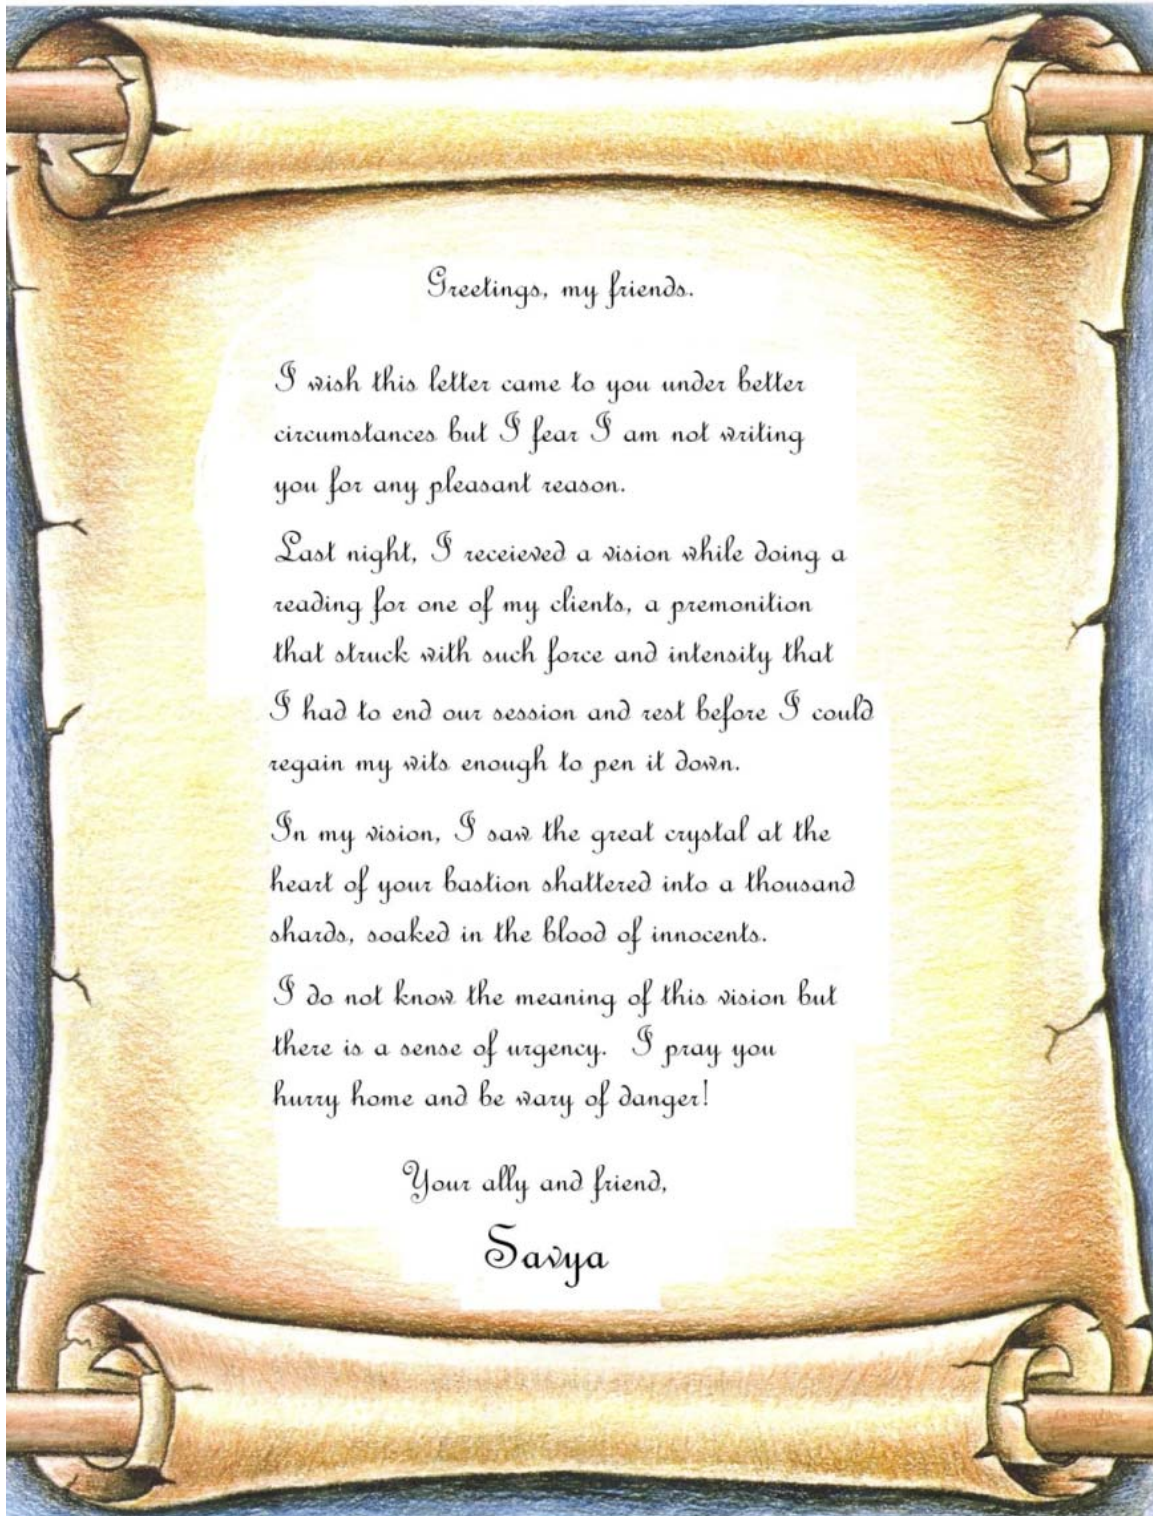 Greetings, my friends.
I wish this letter came to you under better
circumstances but I fear I am not writing
you for any pleasant reason.
Last night, I receieved a vision while doing a
reading for one of my clients, a premonition
that struck with such force and intensity that
I had to end our session and rest before I could
regain my wits enough to pen it down.
In my vision, I saw the great crystal at the
heart of your bastion shattered into a thousand
shards, soaked in the blood of innocents.
I do not know the meaning of this vision but
there is a sense of urgency. I pray you
hurry home and be wary of danger!
Your ally and friend,
Savya